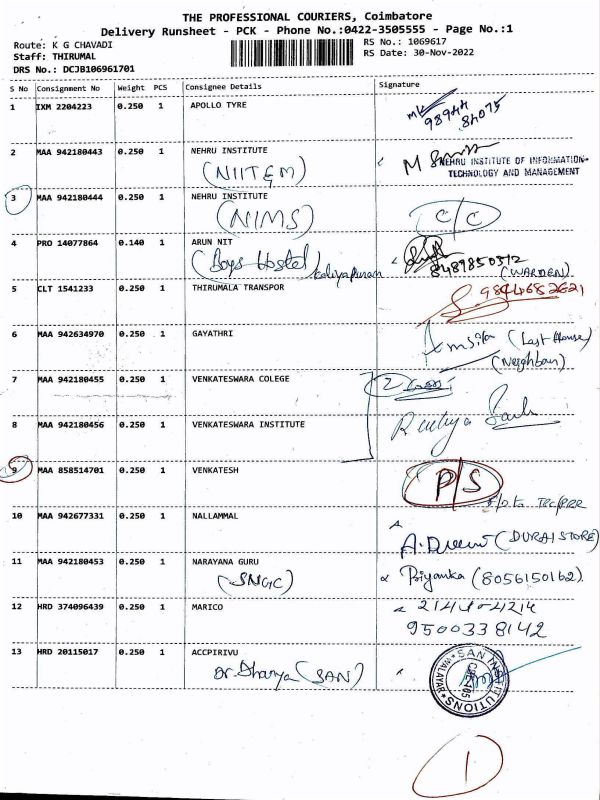 THE PROFESSIONAL COURIERS, Coimbatore
Delivery Runsheet - PCK - Phone No.:0422-3505555 - Page No.:1
Route: K G CHAVADI
RS No.: 1069617
Staff: THIRUMAL
RS Date: 30-Nov-2022
DRS No.: DCJB106961701
S No Consignment No Weight PCS Consignee Details Signature
1 IXM 2204223 0.250 1 APOLLO TYRE
98944
84075
2 MAA 942180443 0.250 1 NEHRU INSTITUTE
(NIITEM)
NEHRU INSTITUTE OF INFORMATION
TECHNOLOGY AND MANAGEMENT
3 MAA 942180444 0.250 1 NEHRU INSTITUTE
(NIMS) C/C
4 PRO 14077864 0.140 1 ARUN NIT
(Boys Hostel) 8489850312
(WARDEN)
5 CLT 1541233 0.250 1 THIRUMALA TRANSPOR
6 MAA 942634970 0.250 1 GAYATHRI
(Last House)
(Neighbour)
7 MAA 942180455 0.250 1 VENKATESWARA COLEGE
8 MAA 942180456 0.250 1 VENKATESWARA INSTITUTE
9 MAA 858514701 0.250 1 VENKATESH
P/S
10 MAA 942677331 0.250 1 NALLAMMAL
(DURAI STORE)
11 MAA 942180453 0.250 1 NARAYANA GURU
(SNGC) Priyanka (8056150162)
12 HRD 374096439 0.250 1 MARICO
9500338142
13 HRD 20115017 0.250 1 ACCPIRIVU
Dr. Dhanya (SAN)
SAN INSTITUTIONS
WALAYAR
1